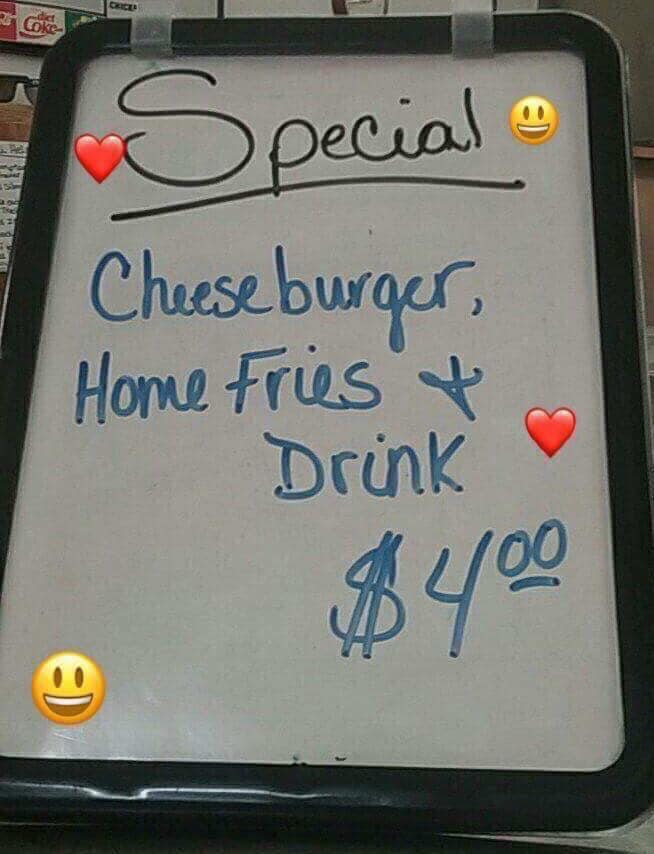 diet
Coke
Special
Cheeseburger,
Home Fries &
Drink
$4.00